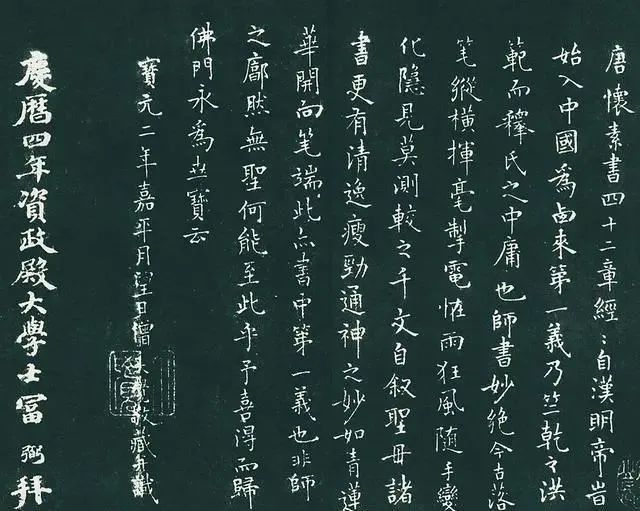 唐懷素書四十二章經〻自漢明帝旹
始入中國為西來第一義乃竺乾之洪
範而釋氏之中庸也師書妙絕今古落
笔縱橫揮毫掣電恠雨狂風隨手變
化隱見莫測較之千文自叙聖母諸
書更有清逸瘦勁通神之妙如青蓮
華開向笔端此亦書中第一義也非師
之廓然無聖何能至此乎予喜得而歸
佛門永為世寶云
寶元二年嘉平月望日儒敬藏并識
慶曆四年資政殿大學士富弼拜